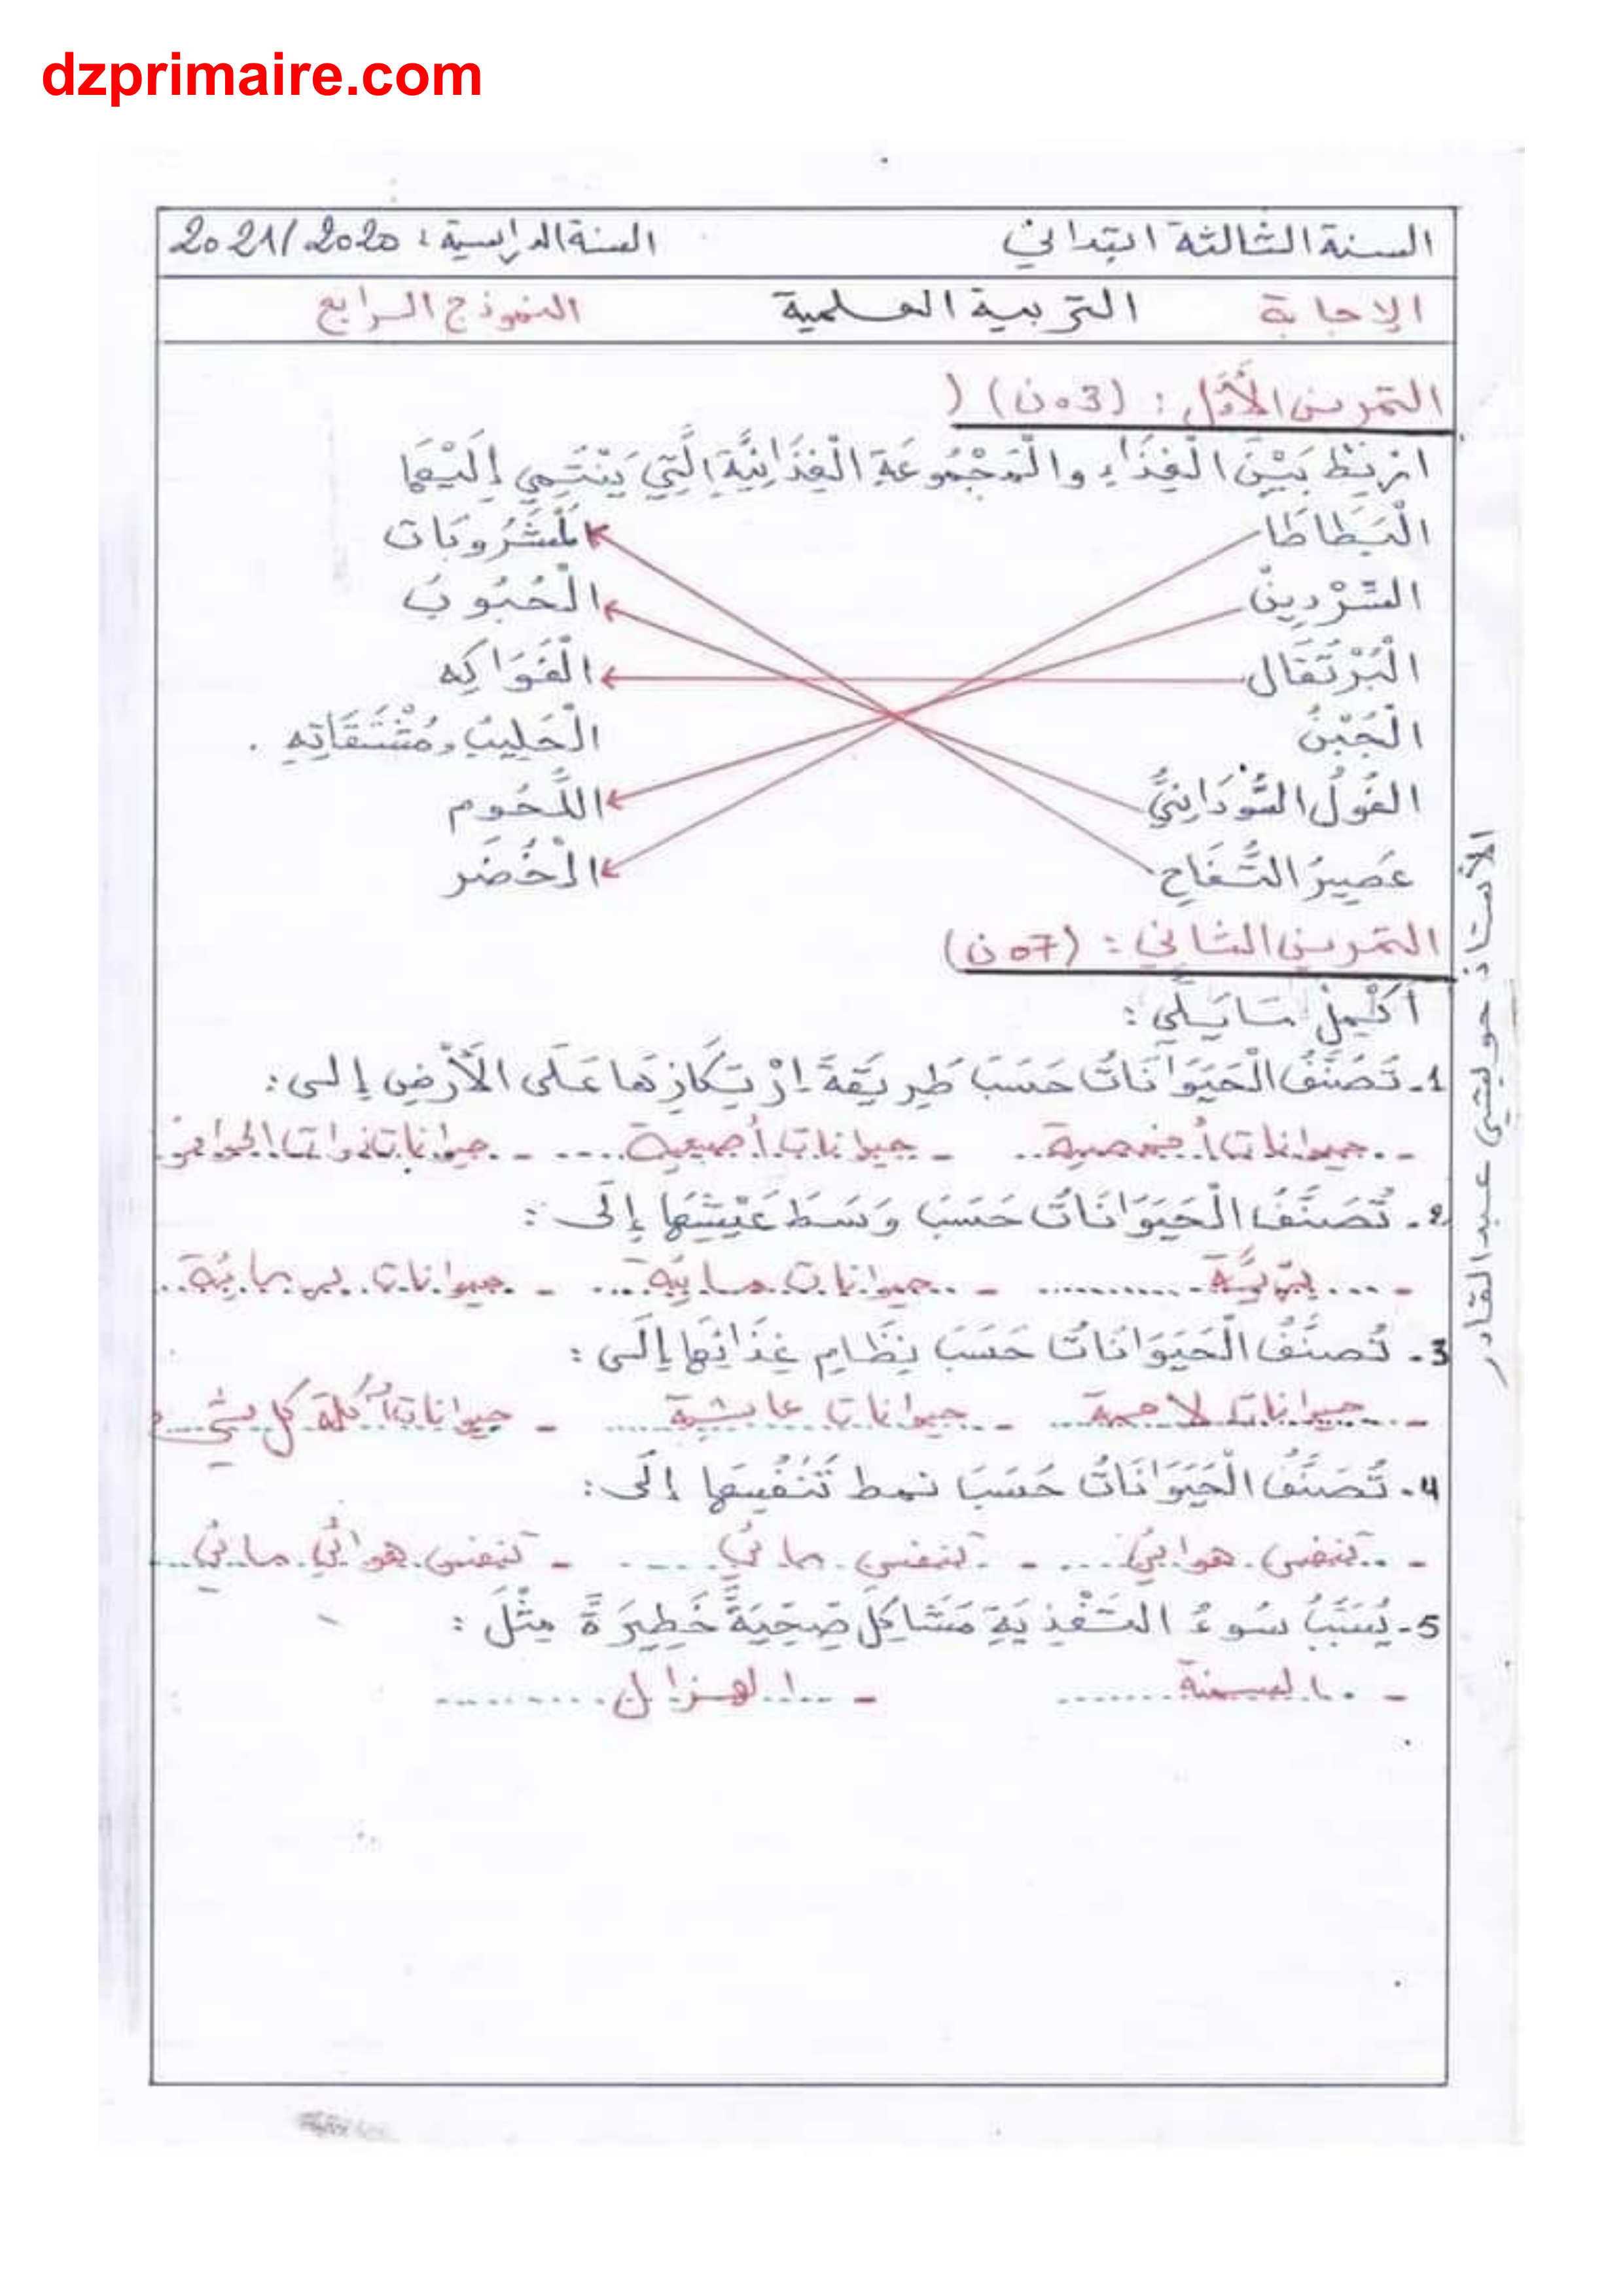 dzprimaire.com
السنة الثالثة ابتدائي السنة الدراسية : 2021/2020
الإجابة التربية العلمية النموذج الرابع
التمرين الأوّل : (03 ن) (
اربط بَيْنَ الْغِذَاءِ والْمَجْمُوعَةِ الْغِذَائِيَّةِ الَّتِي يَنْتَمِي إِلَيْهَا
الْبَطاطَا لمَشْرُوبَات
السَّرْدِينُ الْحُبُوبُ
الْبُرْتُقَال الْفَوَاكِه
الْجُبْنُ الْحَلِيبُ وَمُشْتَقَاتِهِ .
الفُولُ السُّودَانِيُّ اللُّحُوم
عَصِيرُ التُّفَاحِ الْخُضَر
التمرين الثاني : (07 ن)
أَكْمِلْ مَايَلِي :
1- تُصَنَّفُ الْحَيَوَانَاتُ حَسَبَ طَرِيقَةِ اِرْتِكَازِهَا عَلَى الْأَرْضِ إلى :
- حيوانات أخمصية - حيوانات أصبعية - حيوانات ذوات الحوافر
2- تُصَنَّفُ الْحَيَوَانَاتُ حَسَبَ وَسَطِ عَيْشِهَا إِلَى :
- بَرِّيَّة - حيوانات مائِيَّة - حيوانات برمائِيَّة
3- تُصَنَّفُ الْحَيَوَانَاتُ حَسَبَ نِظَامِ غِذَائِهَا إِلَى :
- حيوانات لاحمة - حيوانات عاشبة - حيوانات آكلة كل شيء
4- تُصَنَّفُ الْحَيَوَانَاتُ حَسَبَ نمط تَنَفُسِهَا إِلَى :
- تنفس هوائي - تنفس مائي - تنفس هوائي مائي
5- يُسَبِّبُ سُوءُ التَّغْذِيَةِ مَشَاكِلَ صِحِّيَّةً خَطِيرَةً مِثْلَ :
- السمنة - الهزال
الأستاذ حويشي عبد القادر